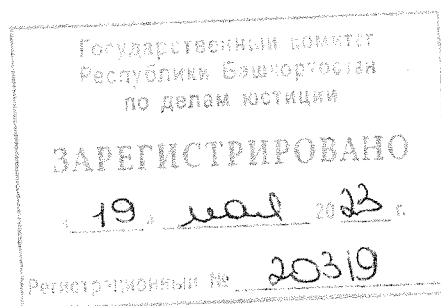 Государственный комитет
Республики Башкортостан
по делам юстиции
ЗАРЕГИСТРИРОВАНО
« 19 » мая 2023 г.
Регистрационный № 20319